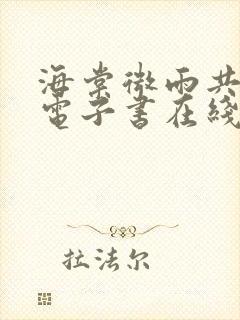 海棠微雨共
電子書在綫
拉法尔